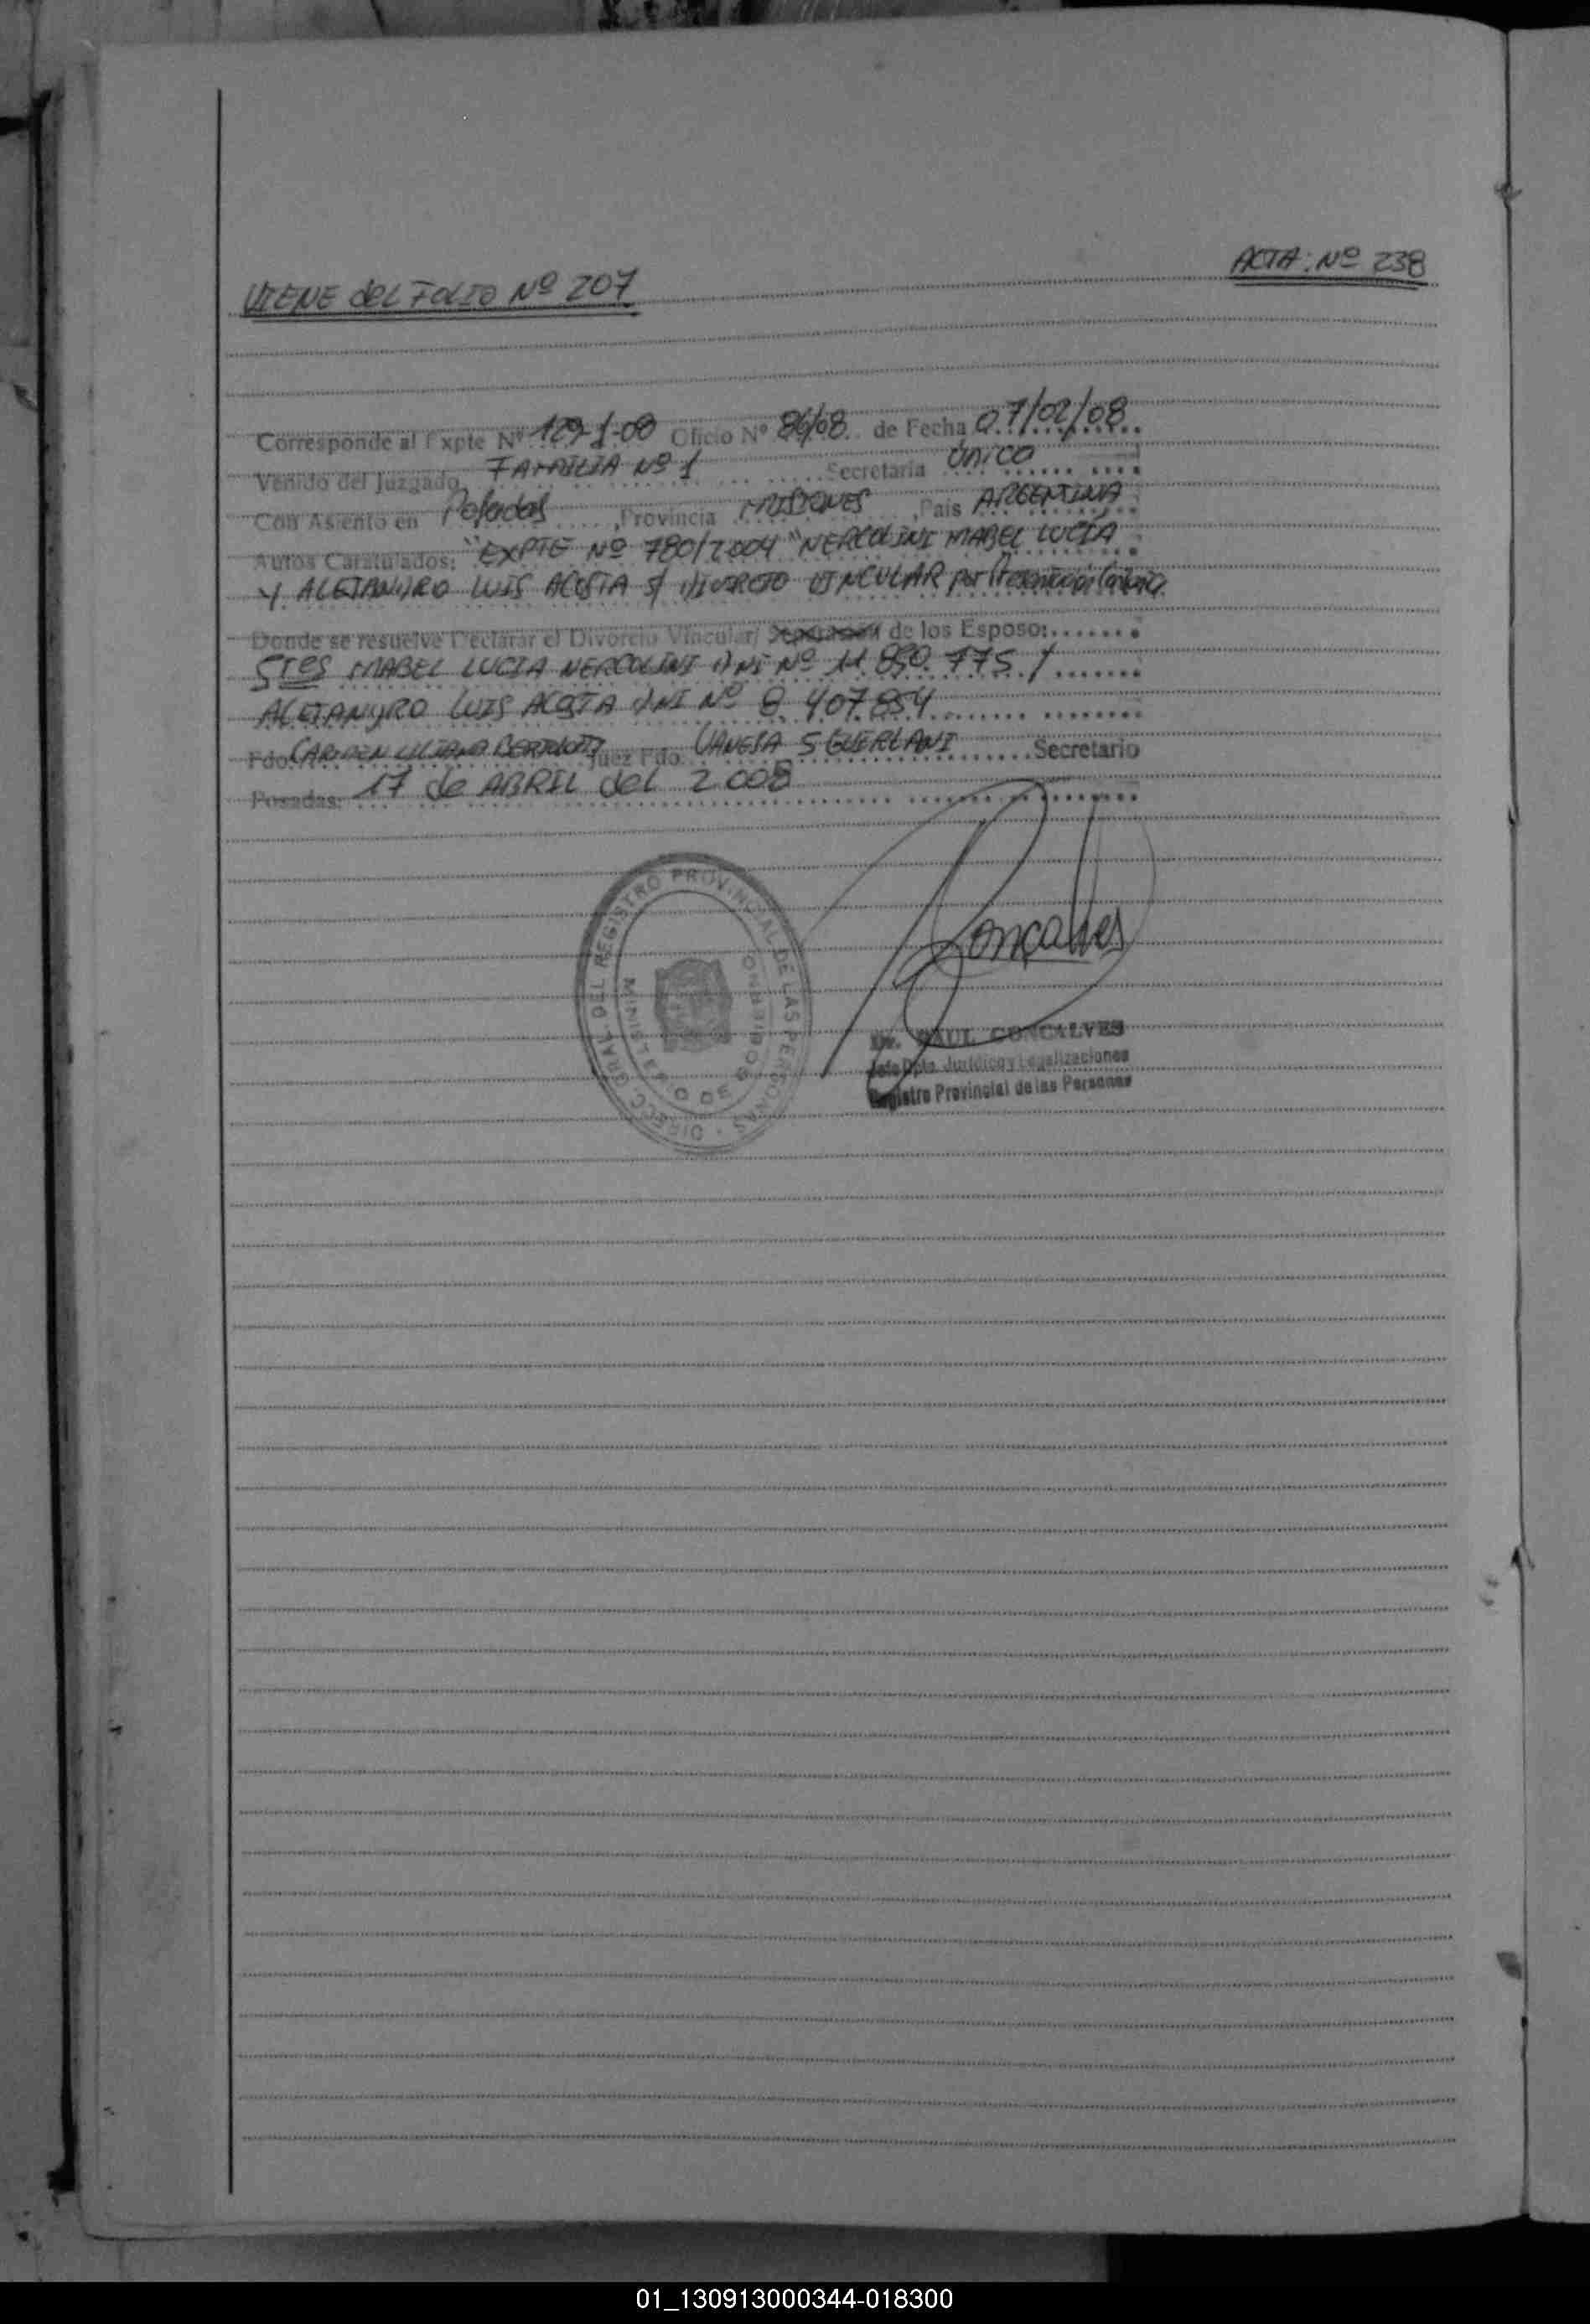 ACTA: Nº 238
VIENE del FOLIO Nº 207
Corresponde al Expte Nº 129-1-08 Oficio Nº 86/08 de Fecha 07/02/08
Venido del Juzgado FAMILIA Nº 1 Secretaria Única
Con Asiento en Posadas, Provincia MISIONES, Pais ARGENTINA
Autos Caratulados: "EXPTE Nº 780/2004 "NERCOLINI MABEL LUCÍA
Y ALEJANDRO LUIS ACOSTA S/ DIVORCIO VINCULAR por Presentación Conjunta
Donde se resuelve Declarar el Divorcio Vincular/ Separación de los Esposo:
Sres MABEL LUCIA NERCOLINI DNI Nº 11.890.775 /
ALEJANDRO LUIS ACOSTA DNI Nº 8.407.854
Fdo. CARMEN LILIANA BERTOLOTTI Juez Fdo. VANESA S GUERLANI Secretario
Posadas: 17 de ABRIL del 2.008
DIRECC. GRAL. DEL REGISTRO PROVINCIAL DE LAS PERSONAS
MINISTERIO DE GOBIERNO
Goncalves
Dr. RAUL GONCALVES
Jefe Dpto. Jurídico y Legalizaciones
Registro Provincial de las Personas
01_130913000344-018300